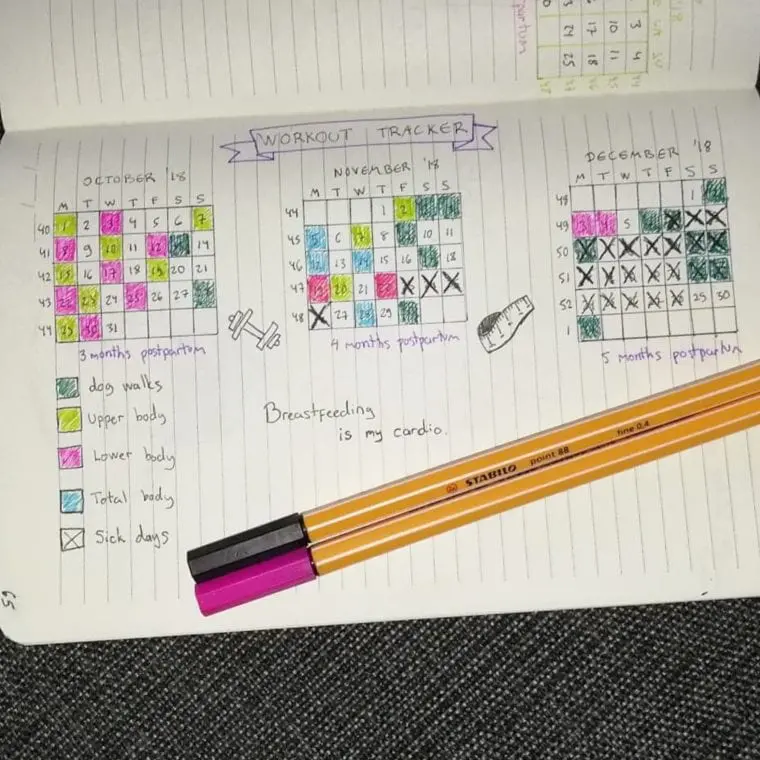 WORKOUT TRACKER
OCTOBER '18
M T W T F S S
40 1 2 3 4 5 6 7
41 8 9 10 11 12 14
42 15 16 17 18 19 20 21
43 22 23 24 25 26 27
44 29 30 31
3 months postpartum
NOVEMBER '18
M T W T F S S
44 1 2
45 5 6 7 8 10 11
46 12 13 14 15 16 18
47 19 20 21 22
48 27 28 29
4 months postpartum
DECEMBER '18
M T W T F S S
48 1
49 3 4 5
50
51
52 29 30
1
5 months postpartum
dog walks
Upper body
Lower body
Total body
Sick days
Breastfeeding
is my cardio.
STABILO point 88 fine 0,4
65